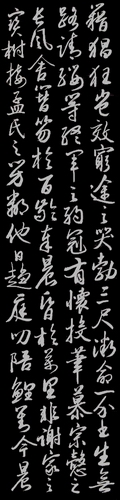 籍猖狂豈效窮途之哭勃三尺微命一介書生無
路請纓等終軍之弱冠有懷投筆慕宗愨之
長風舍簪笏於百齡奉晨昏於萬里非謝家之
寶樹接孟氏之芳鄰他日趨庭叨陪鯉對今晨